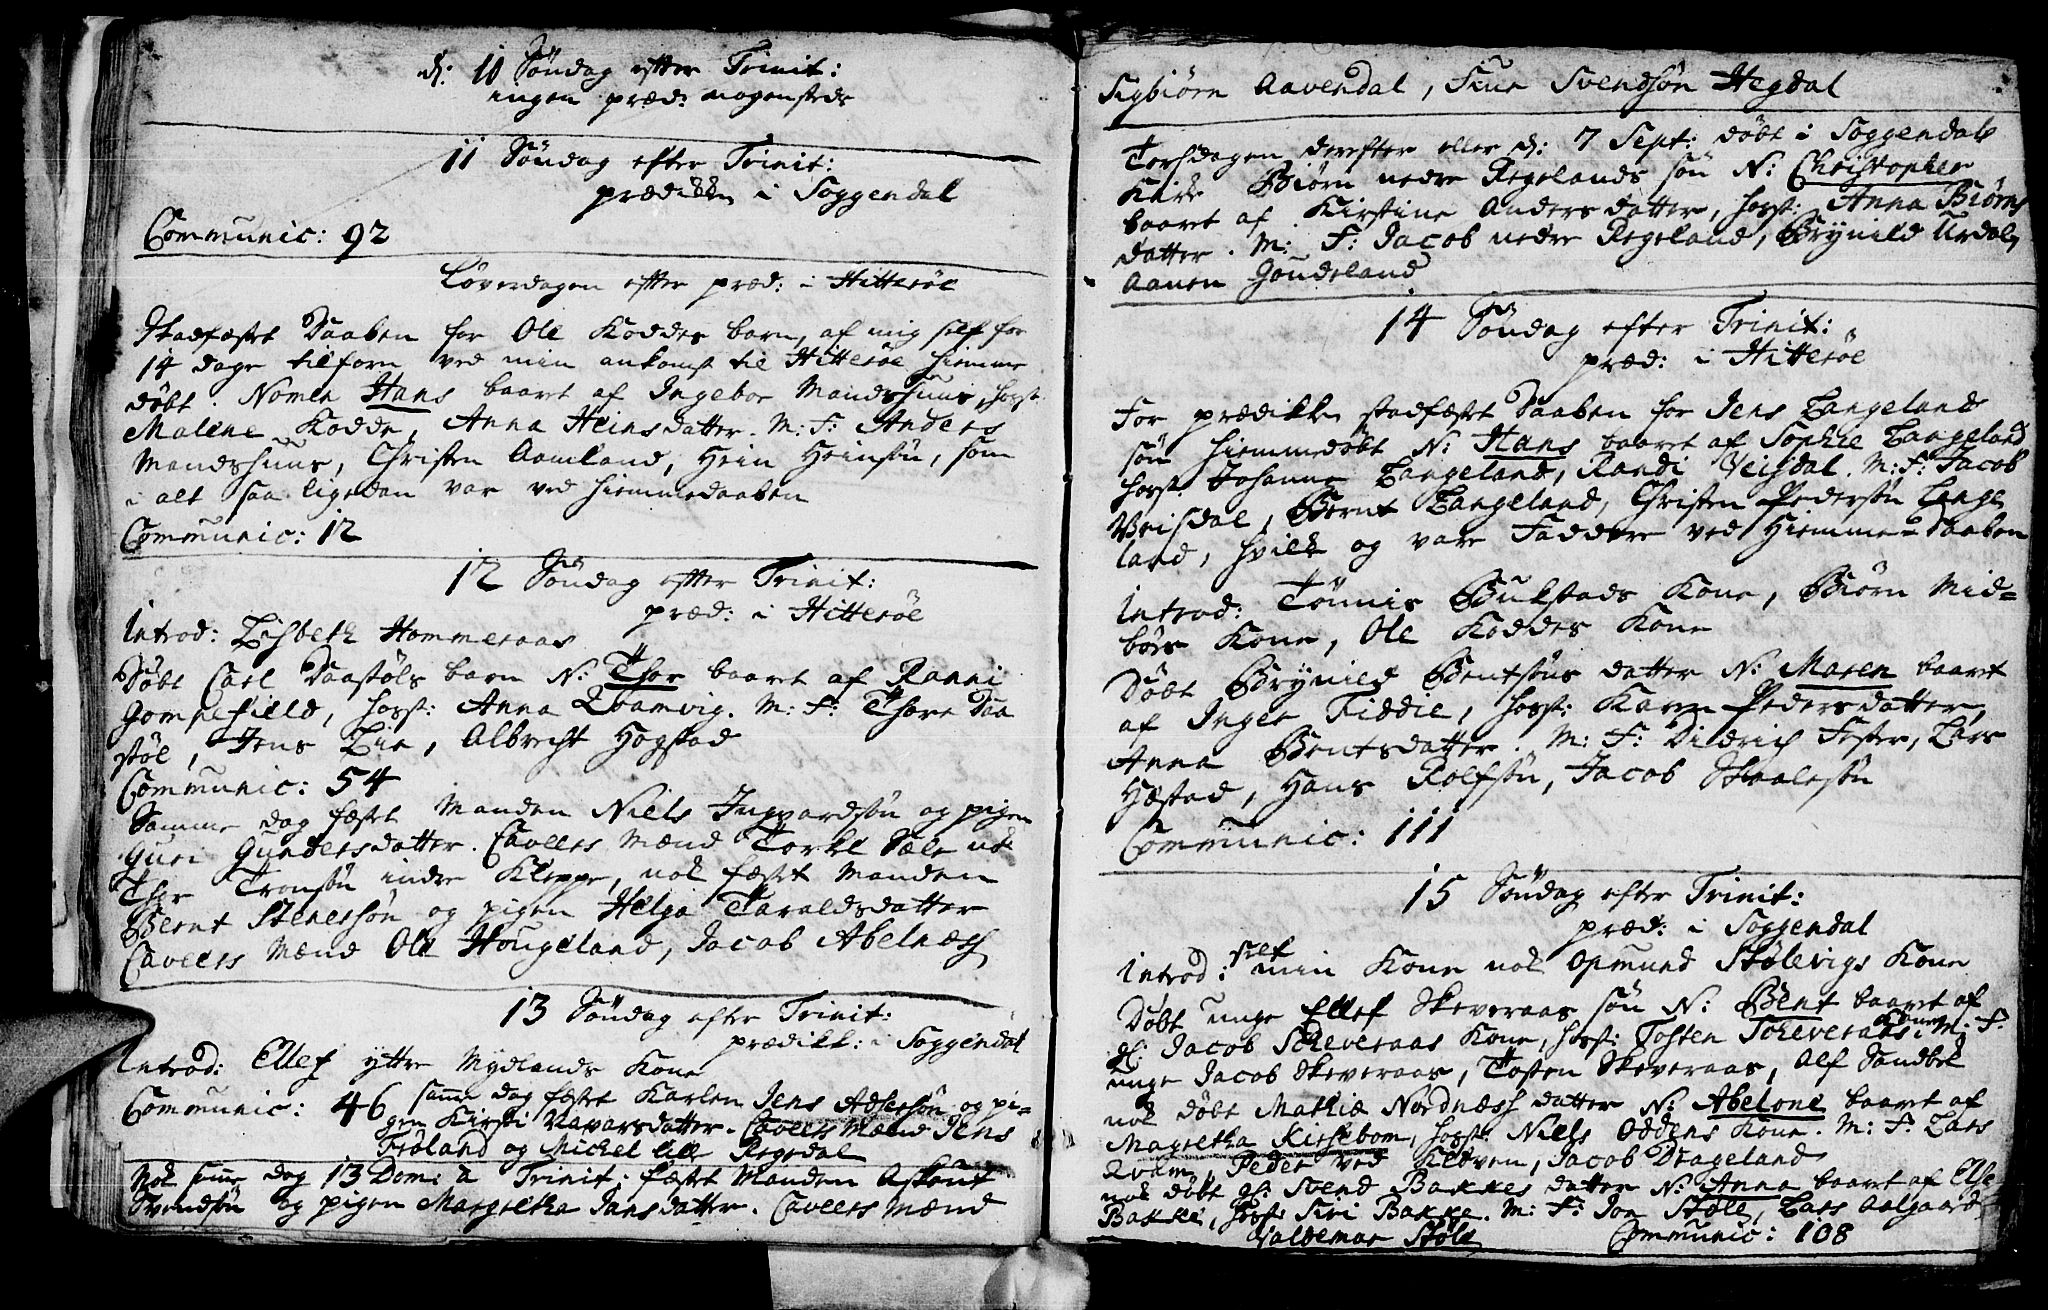 d: 10 Søndag efter Trinit:
ingen præd: nogensteds
11 Søndag efter Trinit:
prædikken i Soggendal
Communic: 92
Løverdagen efter præd: i Hitterøe
Stadfæstet Daaben for Ole Koddes barn, af mig self for
14 dage tilforn ved min ankomst til Hitterøe hiemme
døbt. Nomen Hans baaret af Ingebor Mandshuus, hoest:
Malene Kodde, Anna Heinsdatter. M: F: Anders
Mandshuus, Christen Aamland, Hein Heinsøn, som
i alt saa ligedan var ved hiemmedaaben
Communic: 12
12 Søndag efter Trinit:
præd: i Hitterøe
Introd: Lisbeth Hommeraas
Døbt Carl Daastøls barn N: Thor baaret af Ranni
Gompefield, hoest: Anna Qvamvig. M: F: Thore Daa
støl, Jens Lie, Albrecht Hogstad
Communic: 54
Samme dag fæstet Manden Niels Ingvardsøn og pigen
Guri Gundersdatter. Caveers Mænd Torkel Sæle nok
Thor Tronsøn indre Kleppe, nok fæstet Manden
Bernt Stenersøn og pigen Helga Taraldsdatter
Caveers Mænd Ole Hougeland, Jacob Abelnæss
13 Søndag efter Trinit:
prædikk: i Soggendal
Introd: Ellef yttre Mydlands Kone
Communic: 46 samme dag fæstet Karlen Jens Adsersøn og pi-
gen Kirsti Navarsdatter. Caveers Mænd Jens
Frøland og Michel lille Regedal
Nok samme dag 13 Dom: a Trinit: fæstet Manden Aslent
Svendsøn og pigen Margretha Jansdatter. Caveers Mænd
Sigbiørn Aavendal, Siur Svendsøn Hegdal
Torsdagen derefter eller d: 7 Sept: døbt i Soggendals
Kirke Biørn nedre Regelands søn N: Christopher
baaret af Kirstine Andersdatter, hoest: Anna Biørns
datter. M: F: Jacob nedre Regeland, Brynild Urdal,
Aanen Goudeland
14 Søndag efter Trinit:
præd: i Hitterøe
For prædikken stadfæstet Daaben for Jens Langelands
søn hiemmedøbt N: Hans baaret af Sophie Langeland
hoest: Johanne Langeland, Randi Veisdal. M: F: Jacob
Veisdal, Bernt Langeland, Christen Pedersøn Lange
land, hvilke og vare Faddere ved Hiemme-Daaben
Introd: Tønnis Bukstads Kone, Biørn Mid=
bøes Kone, Ole Koddes Kone
Døbt Brynild Bentsøns datter N: Maren baaret
af Inger Fiddie, hoest: Karen Pedersdatter,
Anna Bentsdatter. M: F: Didrich Fester, Lars
Hæstad, Hans Rolfsøn, Jacob Staalesøn
Communic: 111
15 Søndag efter Trinit:
præd: i Soggendal
Introd: self min Kone nok Opmund Stølevigs Kone
Døbt unge Ellef Skeveraas søn N: Bent baaret af
gl: Jacob Schveraas Kone, hoest: Tosten Scheveraas Kone. M: F:
unge Jacob Skeveraas, Tosten Skeveraas, Alf Sandbek
nok døbt Mathiæ Nordnæss datter N: Abelone baaret af
Magretha Kirsebom, hoest: Niels Oddens Kone. M: F: Lars
Qvam, Peder ved Kløven, Jacob Drageland
nok døbt gl: Svend Bakkes datter N: Anna baaret af Else
Bakke, hoest: Siri Bakke. M: F: Jon Støle, Lars Aalgaard
Valdemar Støle Communic: 108